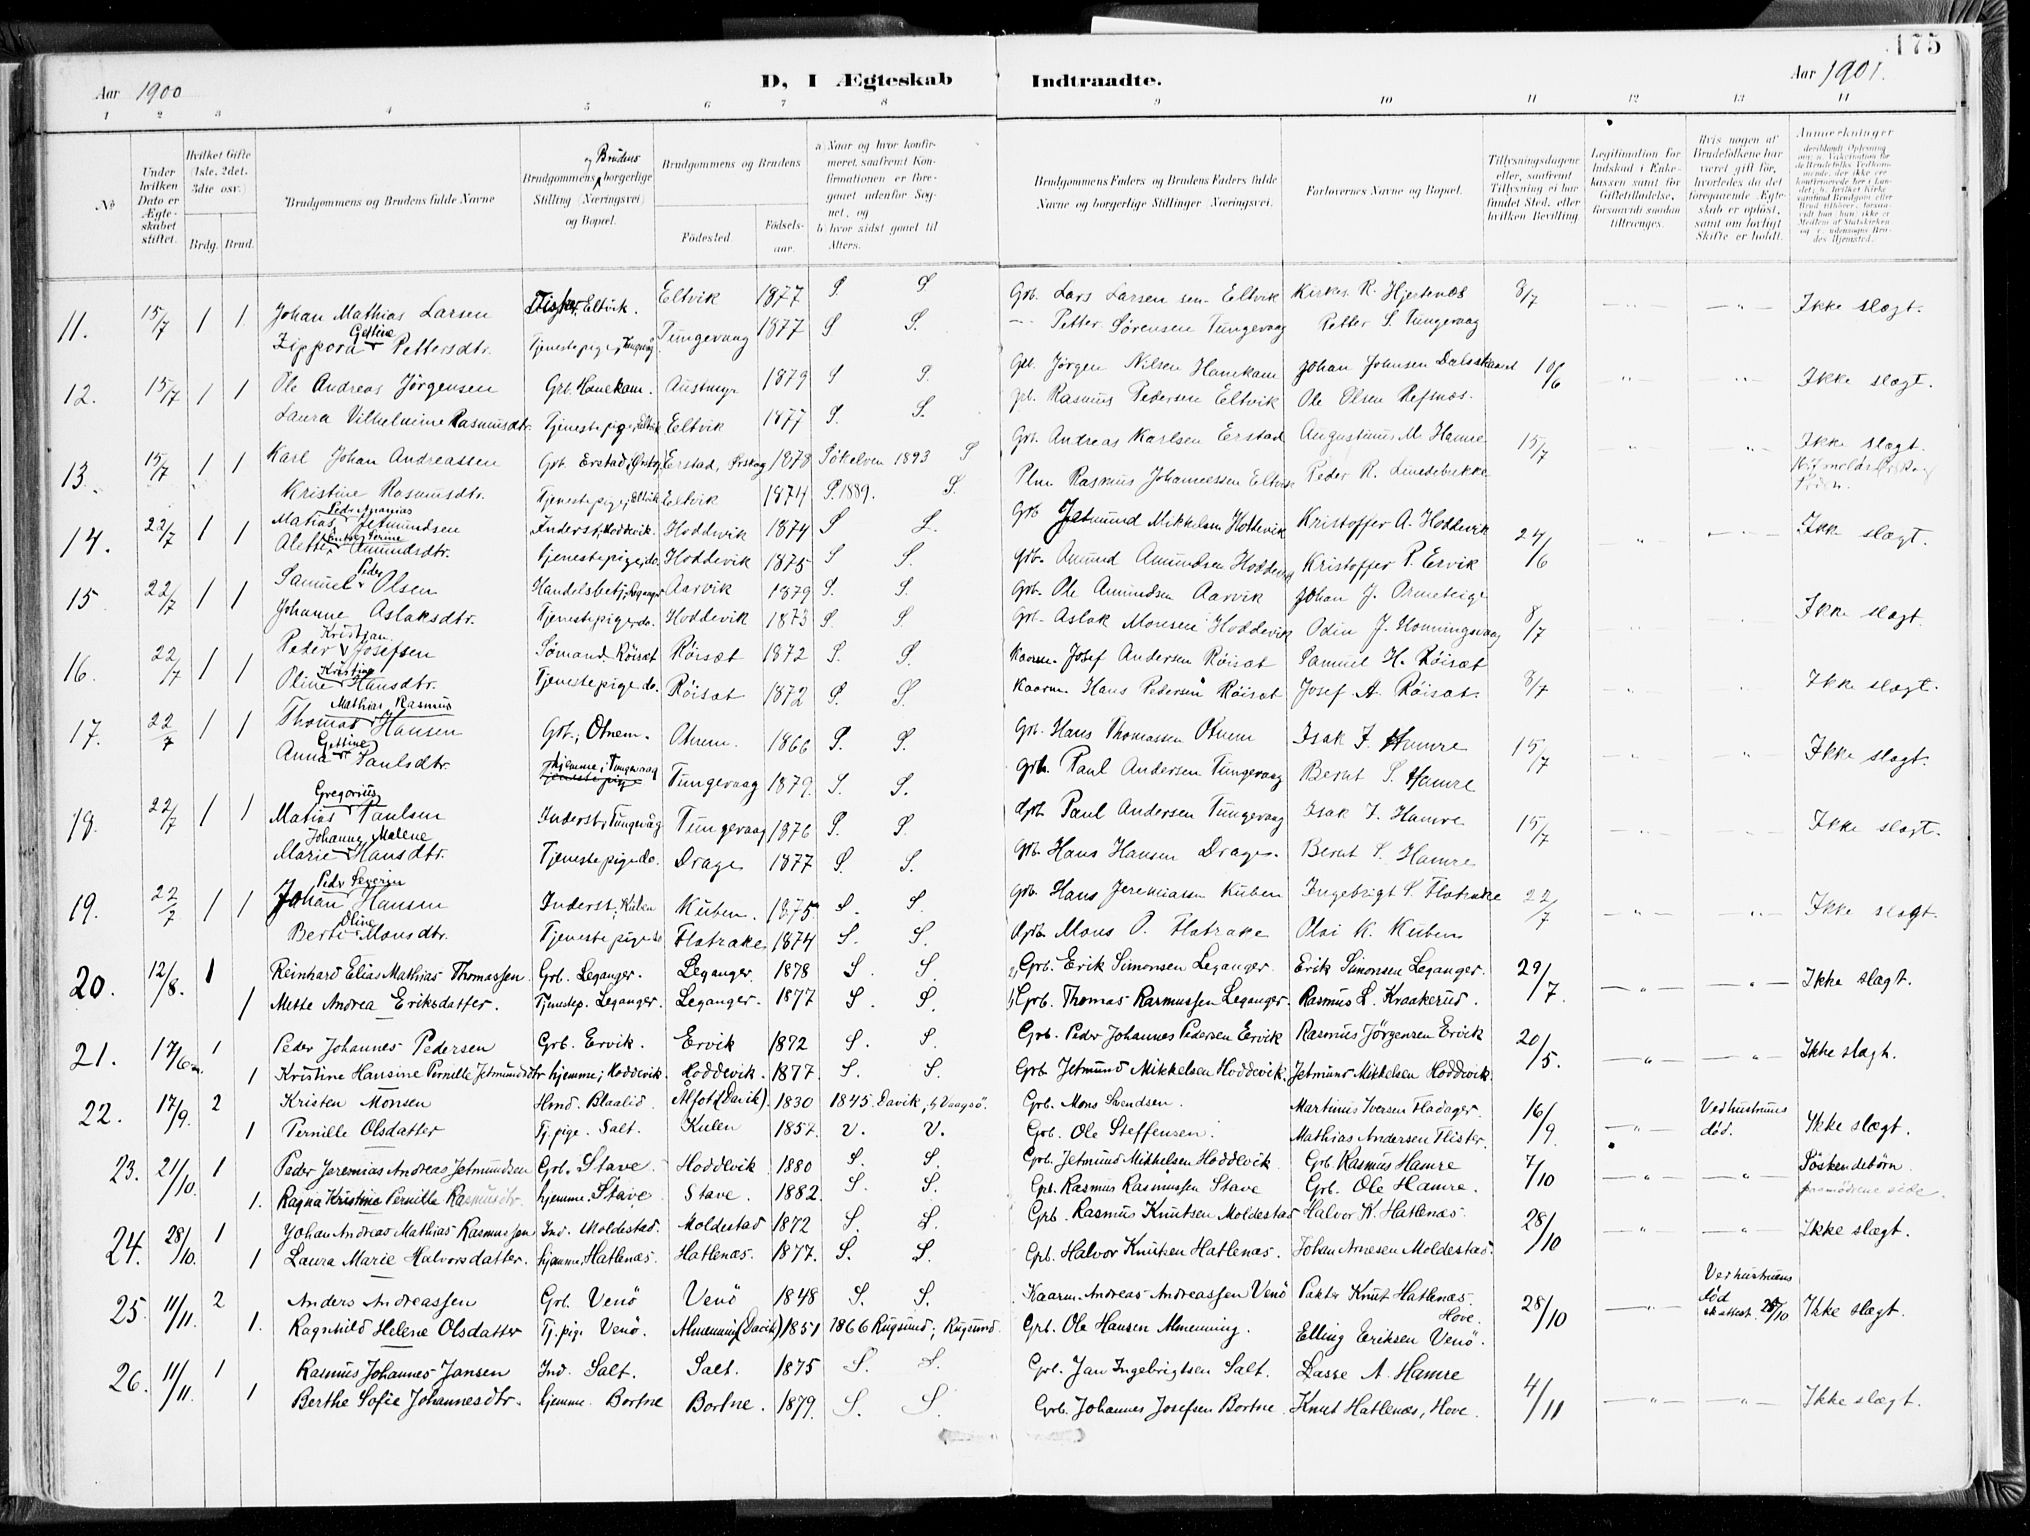 175
Aar 1900
D, I Ægteskab Indtraadte.
Aar 1901.
1 2 3 4 5 6 7 8 9 10 11 12 13 14
No
Under hvilken Dato er Ægteskabet stiftet.
Hvilket Gifte (1ste, 2det, 3die osv.)
Brdg. Brud.
Brudgommens og Brudens fulde Navne
Brudgommens og Brudens borgerlige Stilling (Næringsvei) og Bopæl.
Brudgommens og Brudens
Fødested. Fødselsaar.
a Naar og hvor konfirmeret, saafremt Konfirmationen er foregaaet udenfor Sognet, og
b hvor sidst gaaet til Alters.
Brudgommens Faders og Brudens Faders fulde Navne og borgerlige Stillinger (Næringsvei).
Forlovernes Navne og Bopæl.
Tillysningsdagene eller, saafremt Tillysning ei har fundet Sted, efter hvilken Bevilling.
Legitimation for Indskud i Enkekassen samt for Giftetilladelse, forsaavidt saadan tiltrænges.
Hvis nogen af Brudefolkene har været gift, hvorledes da det foregaaende Ægteskab er opløst, samt om lovligt Skifte er holdt.
Anmerkninger
11. 15/7 1 1 Johan Mathias Larsen Fisker, Eltvik. Eltvik 1877 S. S Grb. Lars Larsen sen. Eltvik Kirkes. R. Hjertenæs 8/7 — " — — " — Ikke slægt.
Zippora Gettine Pettersdtr. Tjenestepige, Tungevåg Tungevaag 1877 S S. — Petter Sørensen Tungevaag Petter S. Tungevaag
12. 15/7 1 1 Ole Andreas Jørgensen Grb. Hamekam. Austmyr 1879 S S. Grb. Jørgen Nilsen Hamekam Johan Johnsen 10/6 " " Ikke slægt.
Laura Vilhelmine Rasmusdtr. Tjenestepige, Eltvik Eltvik 1877 S. S. Grb. Rasmus Pedersen Eltvik Ole Olsen Refsnæs.
13. 15/7 1 1 Karl Johan Andreassen Grb. Erstad, Erstad, Ørskog 1878 Søkelven 1893 S Grb. Andreas Karlsen Erstad Augustinus M. Hamre 15/7 " " Ikke slægt.
Kristine Rasmusdtr. Tjenestepige, Eltvik Eltvik 1874 S. 1889. S. Plm Rasmus Johannessen Eltvik Peder R.
14. 22/7 1 1 Matias Peder Ananias Jetmundsen Inderst, Hoddevik. Hoddevik 1874 S S. Grb Jetmund Mikkelsen Hoddevik Kristoffer A. Hoddevik 24/6 " " Ikke slægt.
Alette Serine Amundsdtr. Tjenestepige, do. Hoddevik 1875 S S. Grb. Amund Amundsen Hoddevik Kristoffer P. Ervik
15 22/7 1 1 Samuel Peder Olsen Handelsbetj., Leganger Aarvik 1879 S. S. Grb. Ole Amundsen Aarvik Johan J. 8/7 " " Ikke slægt
Johanne Aslaksdtr. Tjenestepige, do. Hoddevik 1873 S. S. Grb. Aslak Monsen Hoddevik Odin J. Honningsvaag
16. 22/7 1 1 Peder Kristian Josefsen Sømand Röisæt Röisæt 1872 S. S. Kaarm. Josef Andersen Röisæt Samuel H. Röisæt 8/7 " " Ikke slægt.
Oline Kristine Hansdtr. Tjenestepige do. Röisæt 1872 S. S. Kaarm. Hans Pedersen Röisæt Josef A. Röisæt.
17. 22/7 1 1 Thomas Mathias Rasmus Hansen Grb.; Otnem. Otnem. 1866 S. S. Grb. Hans Thomassen Otnem Isak J. Hamre 15/7 " " Ikke slægt.
Anna Gettine Paulsdtr. hjemme; Tungevaag Tjenestepige Tungevaag 1879. S. S. Grb. Paul Andersen Tungevaag Bernt S. Hamre
18. 22/7 1 1 Matias Gregorius Paulsen Inderst, Tungevåg Tungevaag 1876 S. S. Grb. Paul Andersen Tungevaag Isak J. Hamre 15/7 " " Ikke slægt.
Marie Johanne Malene Hansdtr. Tjenestepige do. Drage 1877 S. S. Grb. Hans Hansen Drage. Bernt S. Hamre
19. 22/7 1 1 Johan Peder Severin Hansen Inderst, Kulen Kuben. 1875 S. S. Grb. Hans Jeremiassen Kuben Ingebrigt S. Flatrake 22/7 — " — " — Ikke slægt.
Berte Oline Monsdtr. Tjenestepige do Flatrake 1874 S. S. Grb. Mons O. Flatrake Olai K. Kuben
20. 12/8. 1 Reinhard Elias Mathias Thomassen Grb. Leganger. Leganger. 1878 S. S 2) Grb. Erik Simonsen Leganger. Erik Simonsen Leganger. 29/7. — " — — " — Ikke slægt.
1 Mette Andrea Eriksdatter. Tjenestep. Leganger. Leganger. 1877 S. S. 1) Grb. Thomas Rasmussen Leganger. Rasmus L. Kraakerud.
21. 17/6 1 Peder Johannes Pedersen Grb. Ervik. Ervik 1872 S. S. Grb. Peder Johannes Pedersen Ervik Rasmus Jørgensen Ervik 20/5. — " — — " — Ikke slægt.
1 Kristine Hansine Pernille Jetmundsdtr hjemme; Hoddevik. Hoddevik. 1877. S. S. Grb. Jetmund Mikkelsen Hoddevik. Jetmund Mikkelsen Hoddevik.
22. 17/9. 2 Kristen Monsen Hmd. Blaalid. Ålfot (Davik). 1830 1845. Davik, b) Vaagsø. Grb. Mons Svendsen. Martinus Iversen Fladager. 16/9. — " — Ved hustruens død. Ikke slægt.
1 Pernille Olsdatter Tj. pige. Salt. Kulen 1857. v. v. Grb. Ole Steffensen. Mathias Andersen Flister.
23. 21/10. 1 Peder Jeremias Andreas Jetmundsen Grb. Stave. Hoddevik 1880 S. S. Grb. Jetmund Mikkelsen Hoddevik Grb. Rasmus Hamre 7/10 — " — — " — Söskendebörn
1. Ragna Kristine Pernille Rasmusdtr. hjemme. Stave Stave. 1882. S. S. Grb. Rasmus Rasmussen Stave Grb. Ole Hamre. paa mödrene side.
24. 28/10. 1 Johan Andreas Mathias Rasmussen Ind. Moldestad. Moldestad 1872 S. S. Grb. Rasmus Knutsen Moldestad Halvor K. Hatlenæs. 28/10 — " — — " — Ikke slægt.
1 Laura Marie Halvorsdatter. hjemme. Hatlenæs. Hatlenæs. 1877. S. S. Grb. Halvor Knutsen Hatlenæs. Johan Arnesen Moldestad.
25. 11/11. 2 Anders Andreassen Grb. Venö Venö 1848 S. S. Kaarm. Andreas Andreassen Venö Pakter Knut Hatlenæs. Hove. 28/10 — " — Ved hustruens död skattest. 28/10 Ikke slægt.
1. Ragnhild Helene Olsdatter Tj. pige Venö. Almenning (Davik) 1851 1866 Rugsund; Rugsund. Grb. Ole Hansen Almenning. Elling Eriksen Venö.
26. 11/11. 1 Rasmus Johannes Jansen Ind. Salt. Salt. 1875 S. S. Grb. Jan Ingebrigtsen Salt. Lasse A. Hamre 4/11 — " — — " — Ikke slægt.
1 Berthe Sofie Johannesdtr. hjemme. Bortne Bortne. 1879. S. S. Grb. Johannes Josefsen Bortne. Knut Hatlenæs, Hove.